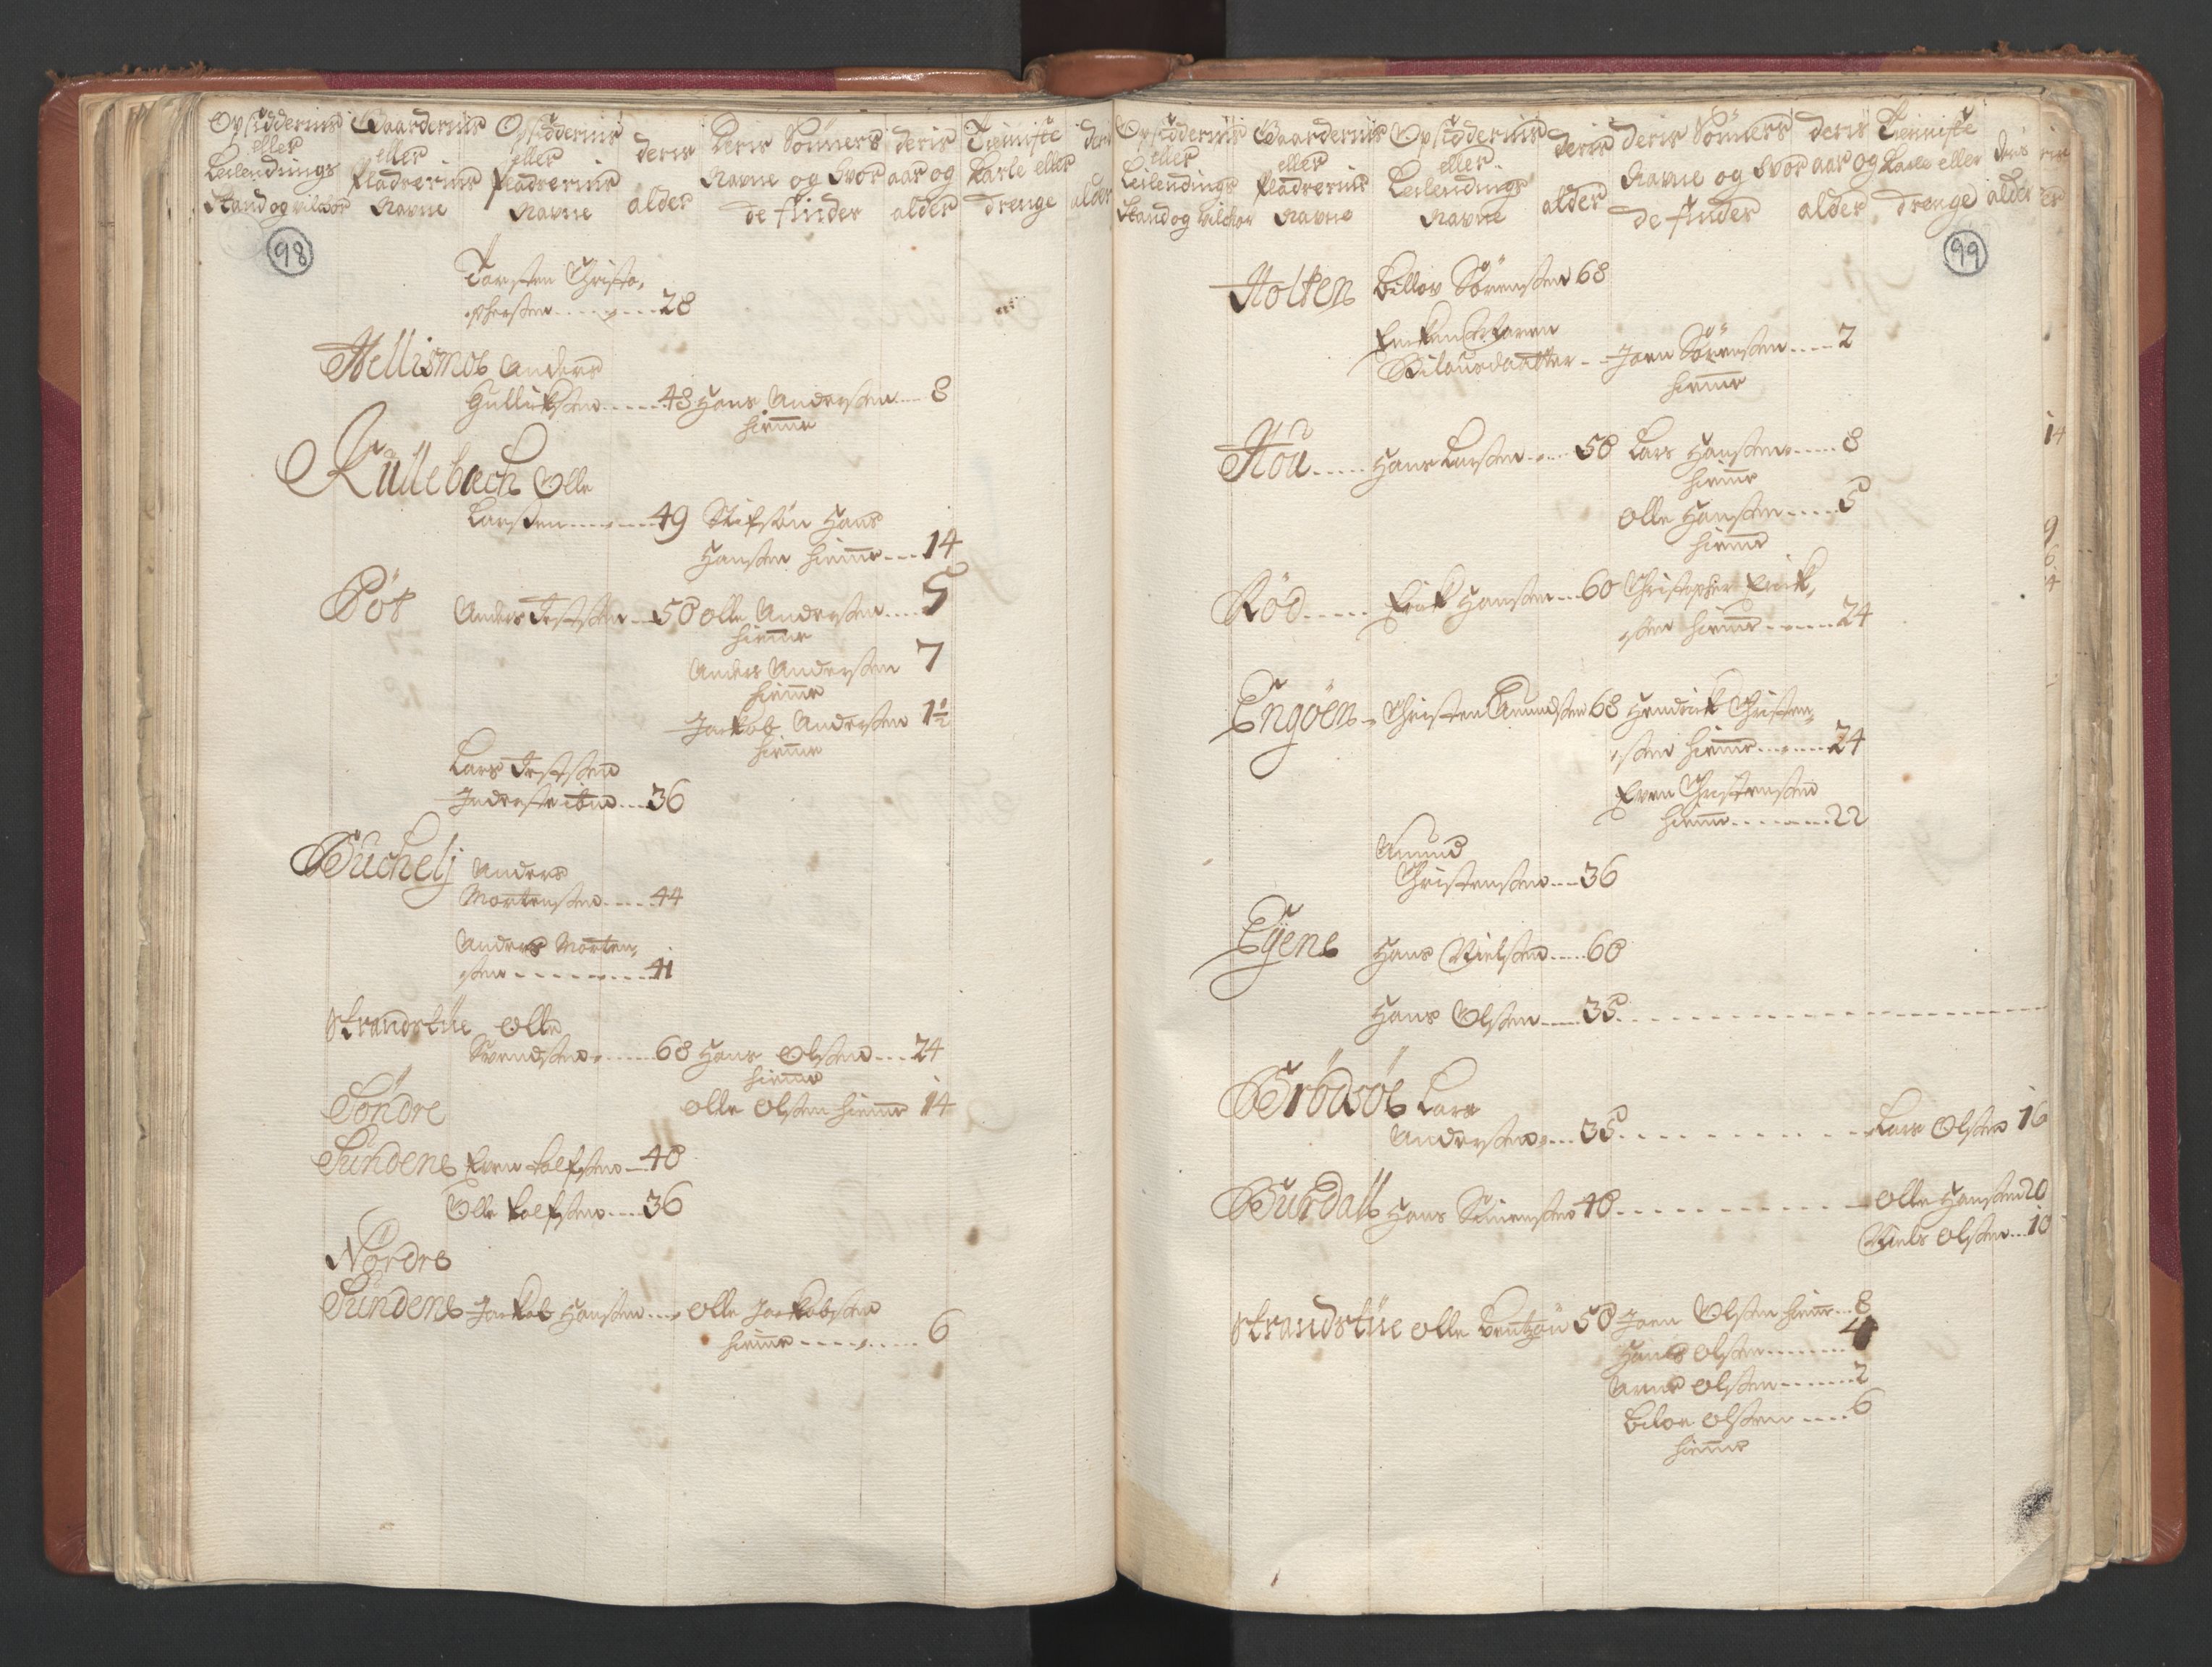 Opsiddernis eller Leilendings Stand og vilckor
Gaardernis eller Pladzernis Navne
Opsiddernis eller Pladzernis Navne
deris alder
Deris Sönners Navne og hvor de finder
deris aar og alder
Tienniste Karle eller drenge
deris alder
98
Torsten Christo,
phersen 28
Hellismoe Anders
Gullicksen 48 Hans Andersen 8
hiemme
Küllebech Olle
Larsen 49 Stifsön Hans
Hansen hiemme 14
Böe Anders 50 Olle Andersen 5
hiemme
Anders Andersen 7
hiemme
Jackob Andersen 1½
hiemme
Lars
36
Büchelj Anders
Mortensen 44
Anders Morten,
sen 41
Strandstüe Olle
Svendsen 68 Hans Olsen 24
hiemme
Söndre Olle Olsen hiemme 14
Sündene Even 40
Olle 36
Nordre
Sündene Jackob Hansen Olle Jackobsen
hiemme 6
Opsiddernis eller Leilendings Stand og vilckor
Gaardernis eller Pladzernis Navne
Opsiddernis eller Leilendings Navne
deris alder
deris Sönners Navne og hvor de finder
deris aar og alder
Tienniste Karle eller drenge
deris alder
99
Holten Sörensen 68
Encken Maren
Joen Sörensen 2
hiemme
Hoü Hans Larsen 50 Lars Hansen 8
hiemme
Olle Hansen 5
hiemme
Röd Erick Hansen 60 Christopher Erick,
sen hiemme 24
Engöen Christen Amundsen 68 Hendrick Christen,
sen hiemme 24
Even Christensen
hiemme 22
Amund
Christensen 36
Eÿene Hans Nielsen 60
Hans Olsen 35
Brödsöe Lars
Andersen 35 Lars Olsen 16
Burdall Hans 40 Olle Hansen 20
Niels Olsen 10
Strandstüe Olle 50 Joen Olsen hiemme 8
Hans Olsen 4
Arne Olsen 2
Olsen 6
hiemme